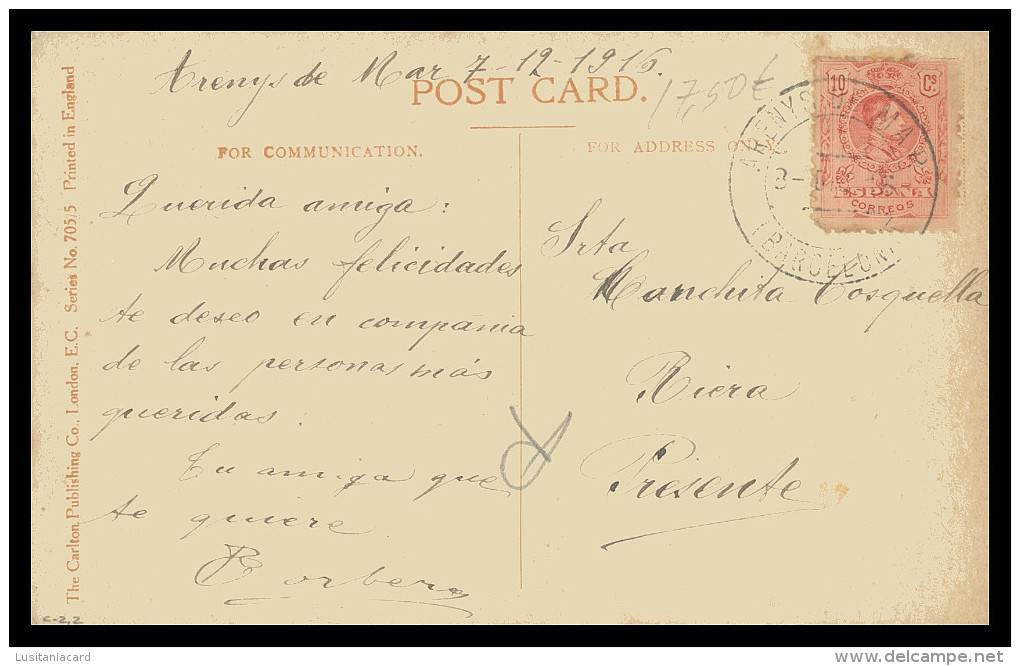 Arenys de Mar 7-12-1916.
POST CARD.
17,50€
FOR COMMUNICATION.
FOR ADDRESS ON
10 Cs
ESPAÑA
CORREOS
ARENYS DE MAR
(BARCELONA
Querida amiga:
Muchas felicidades
te deseo en compánia
de las personas más
queridas.
Tu amiga que
te quiere
Srta
Conchita Cosquella
Riera
Presente
The Carlton Publishing Co., London, E.C. Series No. 705/5 Printed in England
c-2,2
Lusitaniacard
www.delcampe.net